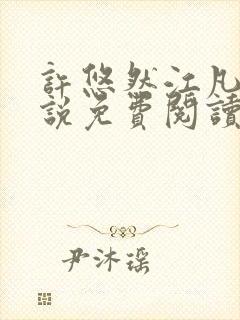 許悠然江凡
說免費閱讀
尹沐瑶